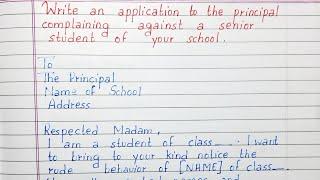 Write an application to the principal
complaining against a senior
student of your school.
To
The Principal
Name of School
Address
Respected Madam,
I am a student of class__. I want
to bring to your kind notice the
rude behavior of [NAME] of class__.